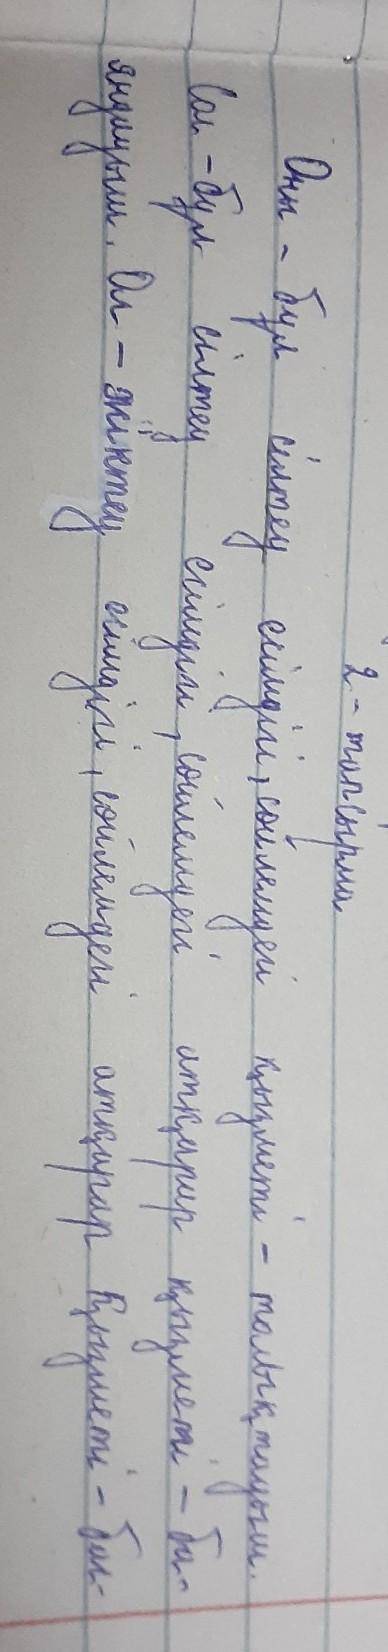 2-тапсырма
Оны - бұл сілтеу есімдігі, сөйлемдегі қызметі - толықтауыш.
Сол - бұл сілтеу есімдігі, сөйлемдегі атқарар қызметі - ба-
яндауыш. Ол - жіктеу есімдігі, сөйлемдегі атқарар қызметі - бая-